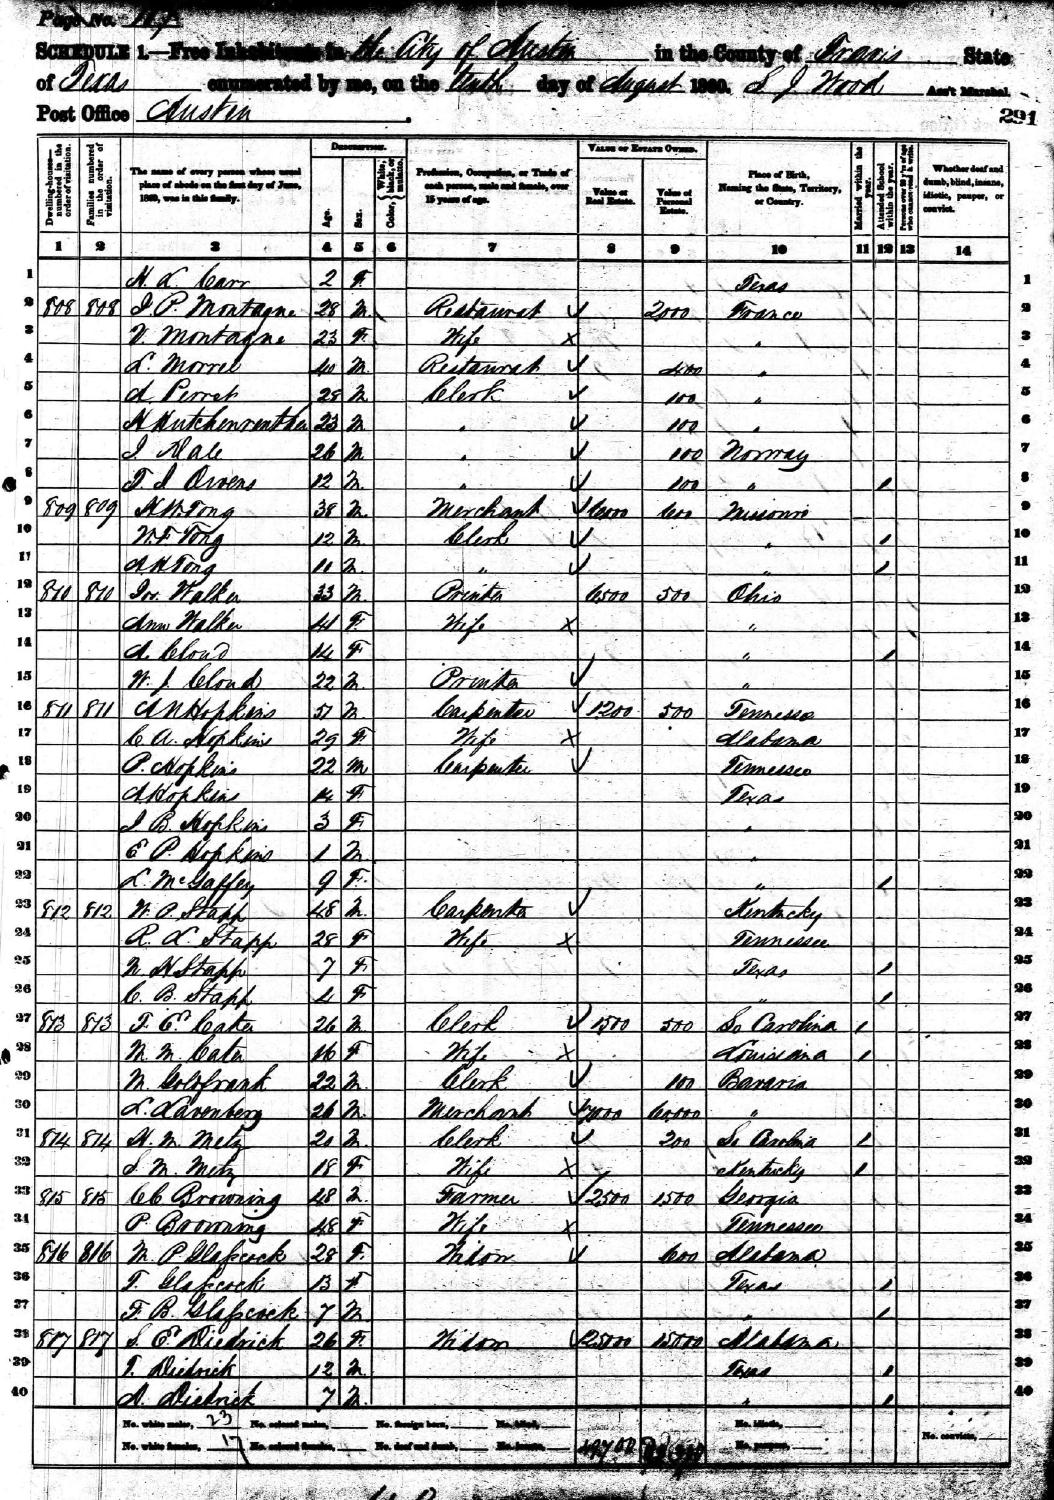 Page No. 117
SCHEDULE 1.—Free Inhabitants in the City of Austin in the County of Travis State
of Texas enumerated by me, on the tenth day of August 1860. S J Wood Ass't Marshal.
291
Post Office Austin
Dwelling-houses—numbered in the order of visitation.
Families numbered in the order of visitation.
The name of every person whose usual place of abode on the first day of June, 1860, was in this family.
DESCRIPTION.
Age.
Sex.
Color, White, black, or mulatto.
Profession, Occupation, or Trade of each person, male and female, over 15 years of age.
VALUE OF ESTATE OWNED.
Value of Real Estate.
Value of Personal Estate.
Place of Birth, Naming the State, Territory, or Country.
Married within the year.
Attended School within the year.
Persons over 20 y'rs of age who cannot read & write.
Whether deaf and dumb, blind, insane, idiotic, pauper, or convict.
1 2 3 4 5 6 7 8 9 10 11 12 13 14
1 H. L. Carr 2 F. Texas 1
2 808 808 J. P. Montagne 28 M. Restaurat ✓ 2000 France 2
3 V. Montagne 23 F. Wife x " 3
4 L. Morrel 40 M. Restaurat ✓ 400 " 4
5 A. Perret 28 M. Clerk ✓ 100 " 5
6 23 M. " ✓ 100 " 6
7 J Dale 26 M. " ✓ 100 Norway 7
8 T. J Owens 12 M. " ✓ 100 " 1 8
9 809 809 Tong 38 M. Merchant ✓ 6000 600 Missouri 9
10 W. F Tong 12 M. Clerk ✓ " 1 10
11 A H Tong 11 M. " ✓ " 1 11
12 810 810 Jos. Walker 33 M. Printer 6500 500 Ohio 12
13 Ann Walker 41 F. Wife x " 13
14 A. Cloud 14 F " 1 14
15 W. J. Cloud 22 M. Printer ✓ " 15
16 811 811 A N Hopkins 51 M. Carpenter ✓ 1200 500 Tennessee 16
17 C A. Hopkins 29 F. Wife x Alabama 17
18 P. Hopkins 22 M Carpenter ✓ Tennessee 18
19 A Hopkins 14 F. Texas 19
20 J B. Hopkins 3 F. " 20
21 E P. Hopkins 1 M. " 21
22 L. McGaffey 9 F. " 1 22
23 812 812 W. P. Stapp 48 M. Carpenter ✓ Kentucky 23
24 R. L. Stapp 28 F Wife x Tennessee 24
25 N. H Stapp 7 F Texas 1 25
26 C. B. Stapp F " 1 26
27 813 813 T. E. Cater 26 M. Clerk ✓ 1500 500 So Carolina 1 27
28 M. M. Cater 16 F Wife x Louisiana 1 28
29 M. Goldfrank 22 M. Clerk ✓ 100 Bavaria 29
30 L. Lavenberg 26 M. Merchant ✓ 60000 " 30
31 814 814 H. M. Metz 20 M. Clerk ✓ 200 So Carolina 1 31
32 S. M. Metz 18 F Wife x Kentucky 1 32
33 815 815 CC Browning 48 M. Farmer ✓ 2500 1500 Georgia 33
34 P. Browning 48 F. Wife x Tennessee 34
35 816 816 M. P. Glasscock 28 F. Widow ✓ 600 Alabama 35
36 T. Glasscock 13 F Texas 1 36
37 F. B. Glasscock 7 M. " 1 37
38 817 817 S. E. Diedrick 26 F. Widow ✓ 25000 15000 Alabama 38
39 T. Diedrick 12 M. Texas 1 39
40 A. Diedrick 7 M. " 1 40
No. white males, 23 No. colored males, No. foreign born, No. blind, No. idiotic,
No. white females, 17 No. colored females, No. deaf and dumb, No. insane, No. paupers, No. convicts,